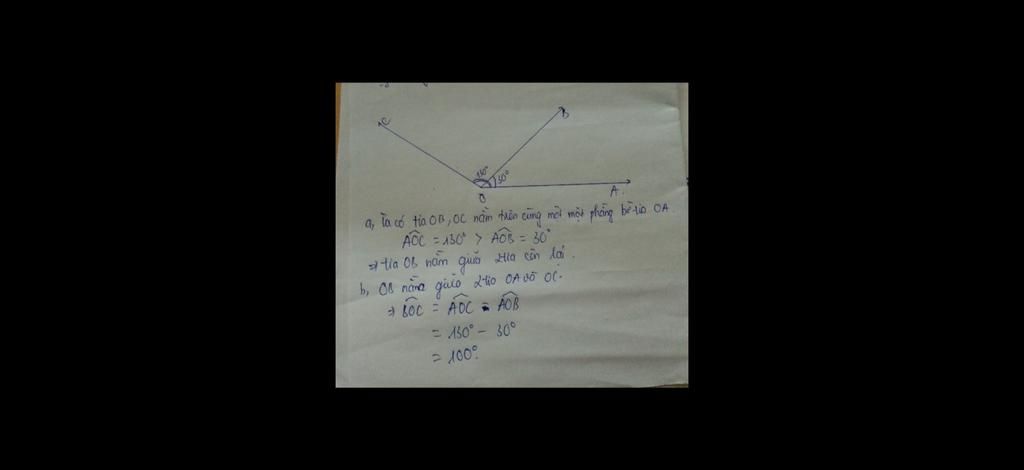 C
B
130°
30°
O
A
a, Ta có tia OB, OC nằm trên cùng một mặt phẳng bờ tia OA.
AOC = 130° > AOB = 30°
⇒ tia OB nằm giữa 2 tia còn lại.
b, OB nằm giữa 2 tia OA và OC.
⇒ BOC = AOC - AOB
= 130° - 30°
= 100°.